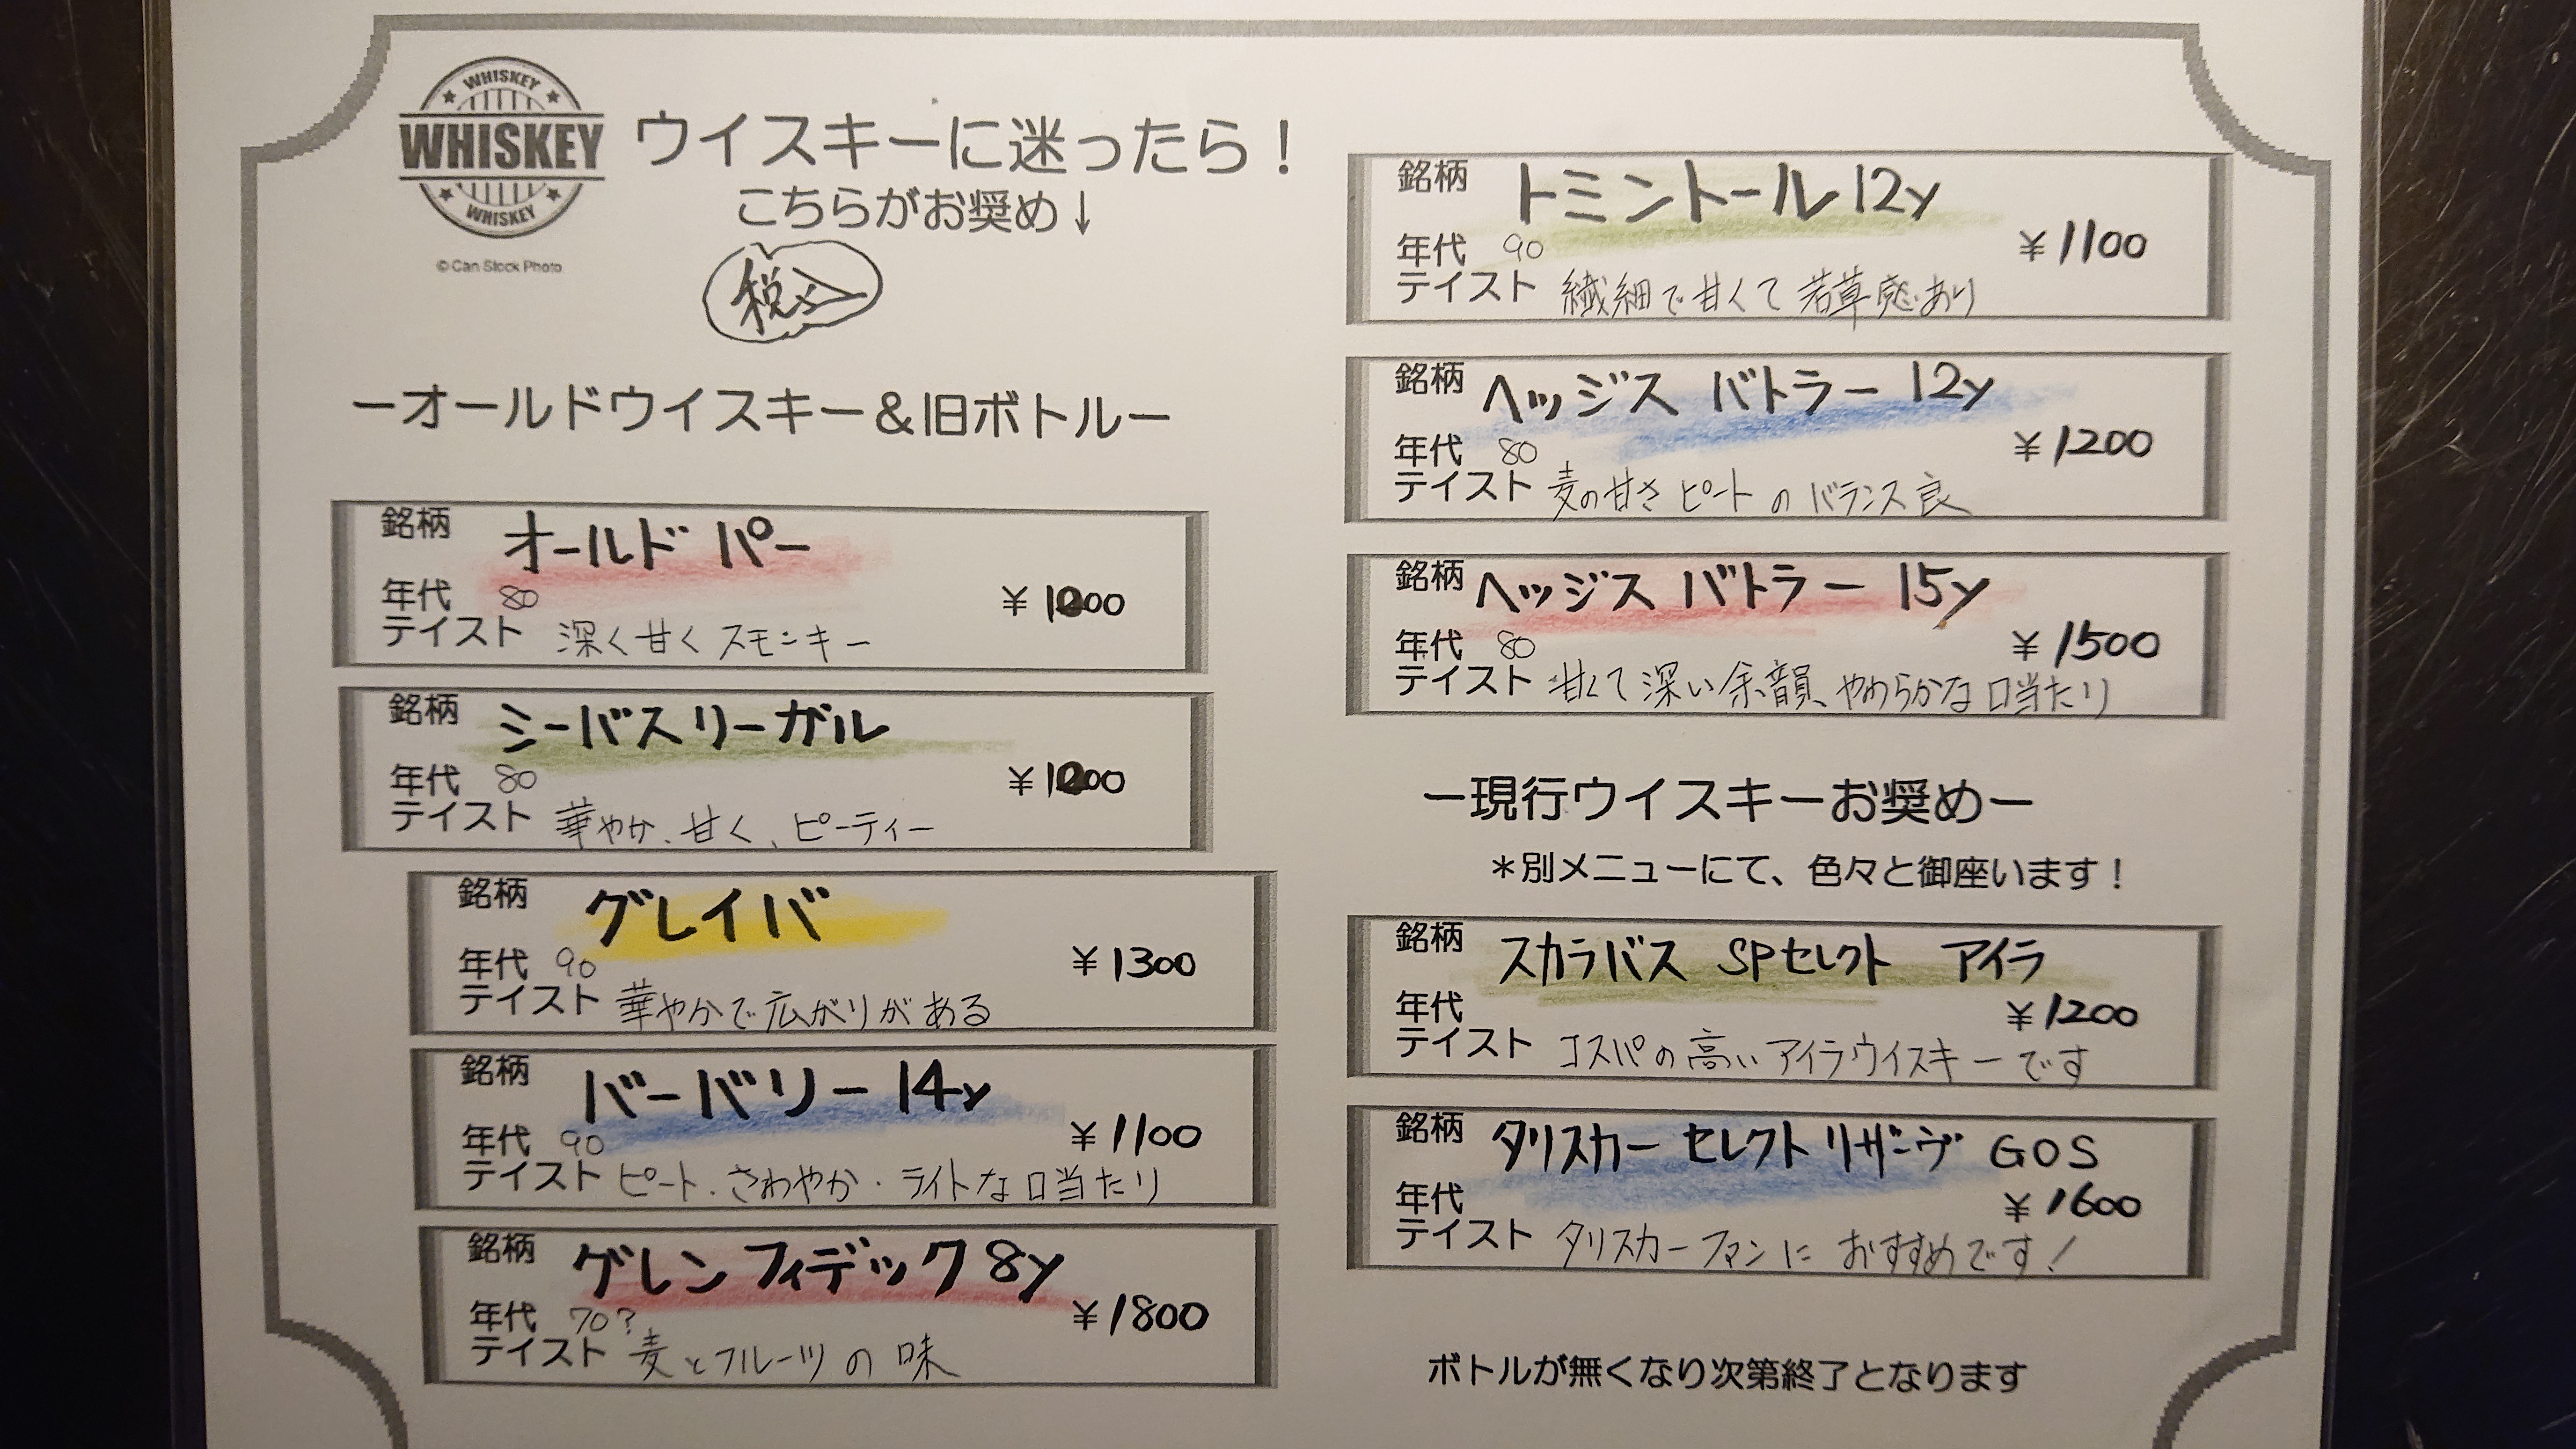 WHISKEY
WHISKEY
WHISKEY
© Can Stock Photo
ウイスキーに迷ったら！
こちらがお奨め↓
税込
ーオールドウイスキー＆旧ボトルー
銘柄 オールド パー
年代 80 ¥1000
テイスト 深く甘く スモンキー
銘柄 シーバスリーガル
年代 80 ¥1000
テイスト 華やか、甘く、ピーティー
銘柄 グレイバ
年代 90 ¥1300
テイスト 華やかで広がりがある
銘柄 バーバリー 14y
年代 90 ¥1100
テイスト ピート・さわやか・ライトな口当たり
銘柄 グレンフィデック 8y
年代 70? ¥1800
テイスト 麦とフルーツの味
銘柄 トミントール 12y
年代 90 ¥1100
テイスト 繊細で甘くて若草感あり
銘柄 ヘッジス バトラー 12y
年代 80 ¥1200
テイスト 麦の甘さ ピートのバランス良
銘柄 ヘッジス バトラー 15y
年代 80 ¥1500
テイスト 甘くて深い余韻、やわらかな口当たり
ー現行ウイスキーお奨めー
＊別メニューにて、色々と御座います！
銘柄 スカラバス SPセレクト アイラ
年代 ¥1200
テイスト コスパの高いアイラウイスキーです
銘柄 タリスカー セレクトリザーヴ GOS
年代 ¥1600
テイスト タリスカーファンに おすすめです！
ボトルが無くなり次第終了となります